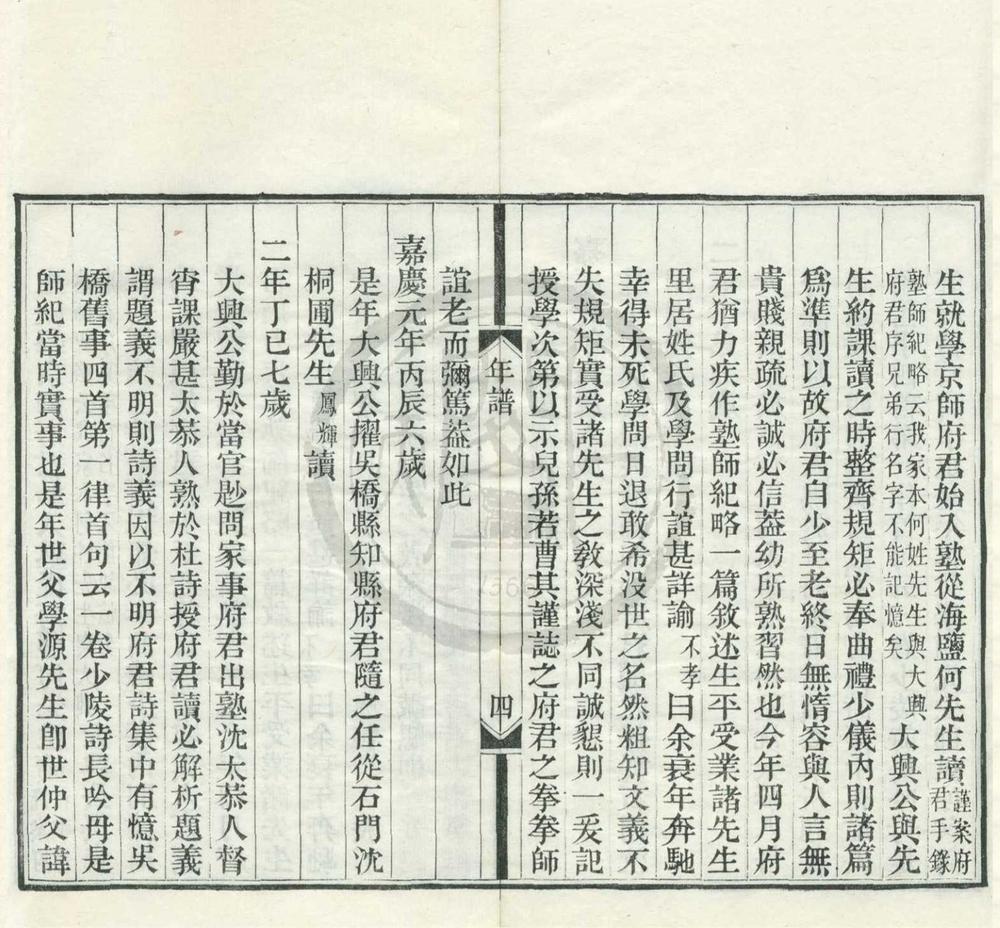 生就學京師府君始入塾從海鹽何先生讀謹案府君手錄
塾師紀略云我家本何姓先生與大興府君序兄弟行名字不能記憶矣大興公與先
生約課讀之時整齊規矩必奉曲禮少儀內則諸篇
爲準則以故府君自少至老終日無惰容與人言無
貴賤親疏必誠必信葢幼所熟習然也今年四月府
君猶力疾作塾師紀略一篇敘述生平受業諸先生
里居姓氏及學問行誼甚詳諭不孝曰余衰年奔馳
幸得未死學問日退敢希没世之名然粗知文義不
失規矩實受諸先生之敎深淺不同誠懇則一爰記
授學次第以示兒孫若曹其謹誌之府君之拳拳師
年譜
四
誼老而彌篤葢如此
嘉慶元年丙辰六歲
是年大興公擢吳橋縣知縣府君隨之任從石門沈
桐圃先生鳳輝讀
二年丁巳七歲
大興公勤於當官尟問家事府君出塾沈太恭人督
宵課嚴甚太恭人熟於杜詩授府君讀必解析題義
謂題義不明則詩義因以不明府君詩集中有憶吳
橋舊事四首第一律首句云一卷少陵詩長吟母是
師紀當時實事也是年世父學源先生卽世仲父諱